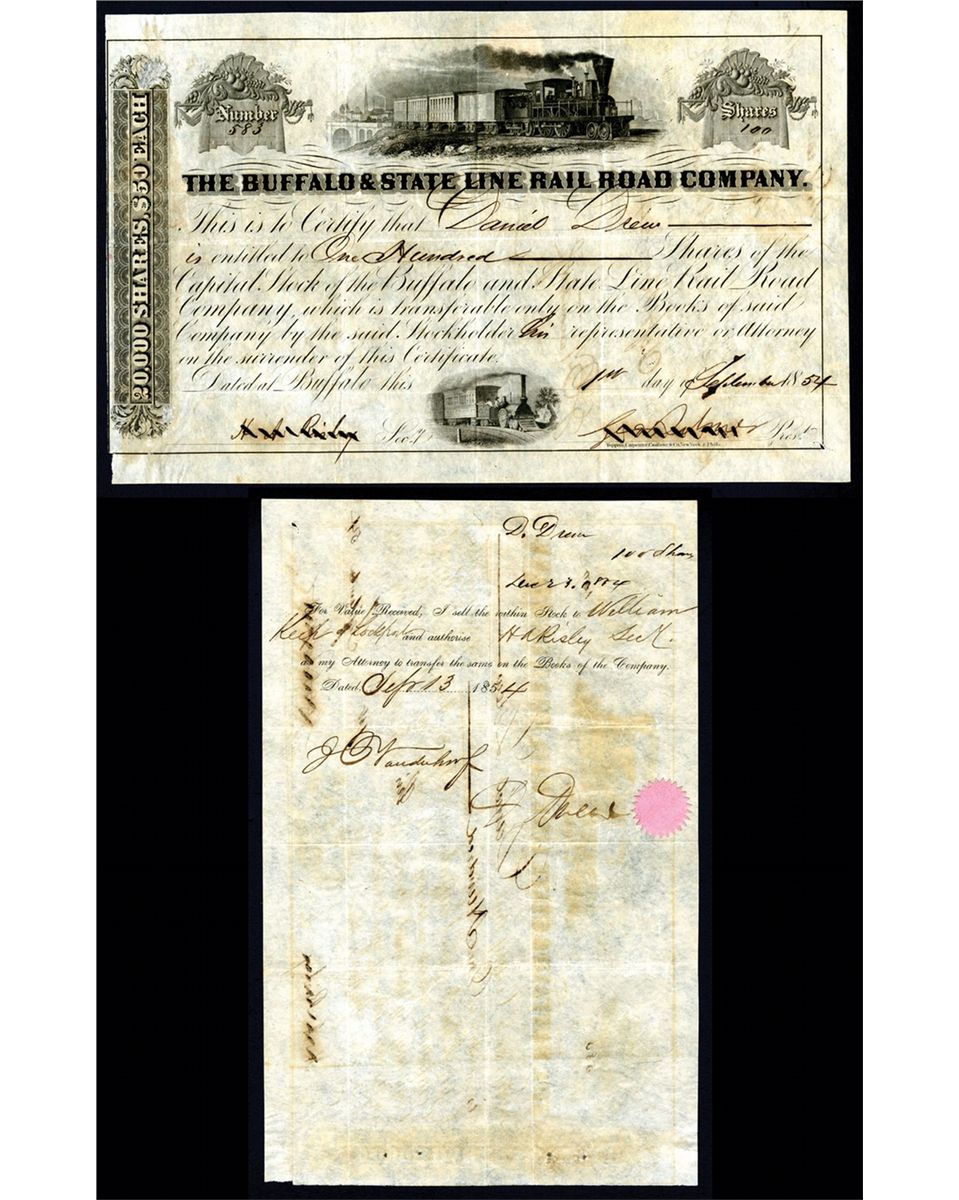 Number
583
Shares
100
20,000 SHARES, $50 EACH
THE BUFFALO & STATE LINE RAIL ROAD COMPANY.
This is to Certify that Daniel Drew
is entitled to One Hundred Shares of the
Capital Stock of the Buffalo and State Line Rail Road
Company, which is transferable only on the Books of said
Company by the said Stockholder his representative or Attorney
on the surrender of this Certificate.
Dated at Buffalo this 1st day of September 1854
Sec.y
Pres.t
Toppan, Carpenter, Casilear & Co. New York & Phila.
D. Drew
100 Shares
For Value Received, I sell the within Stock to William
Keep of Lockport and authorise H A Risley Sect.
as my Attorney to transfer the same on the Books of the Company.
Dated, Sept 13 1854
J C Vanderhoof
D Drew